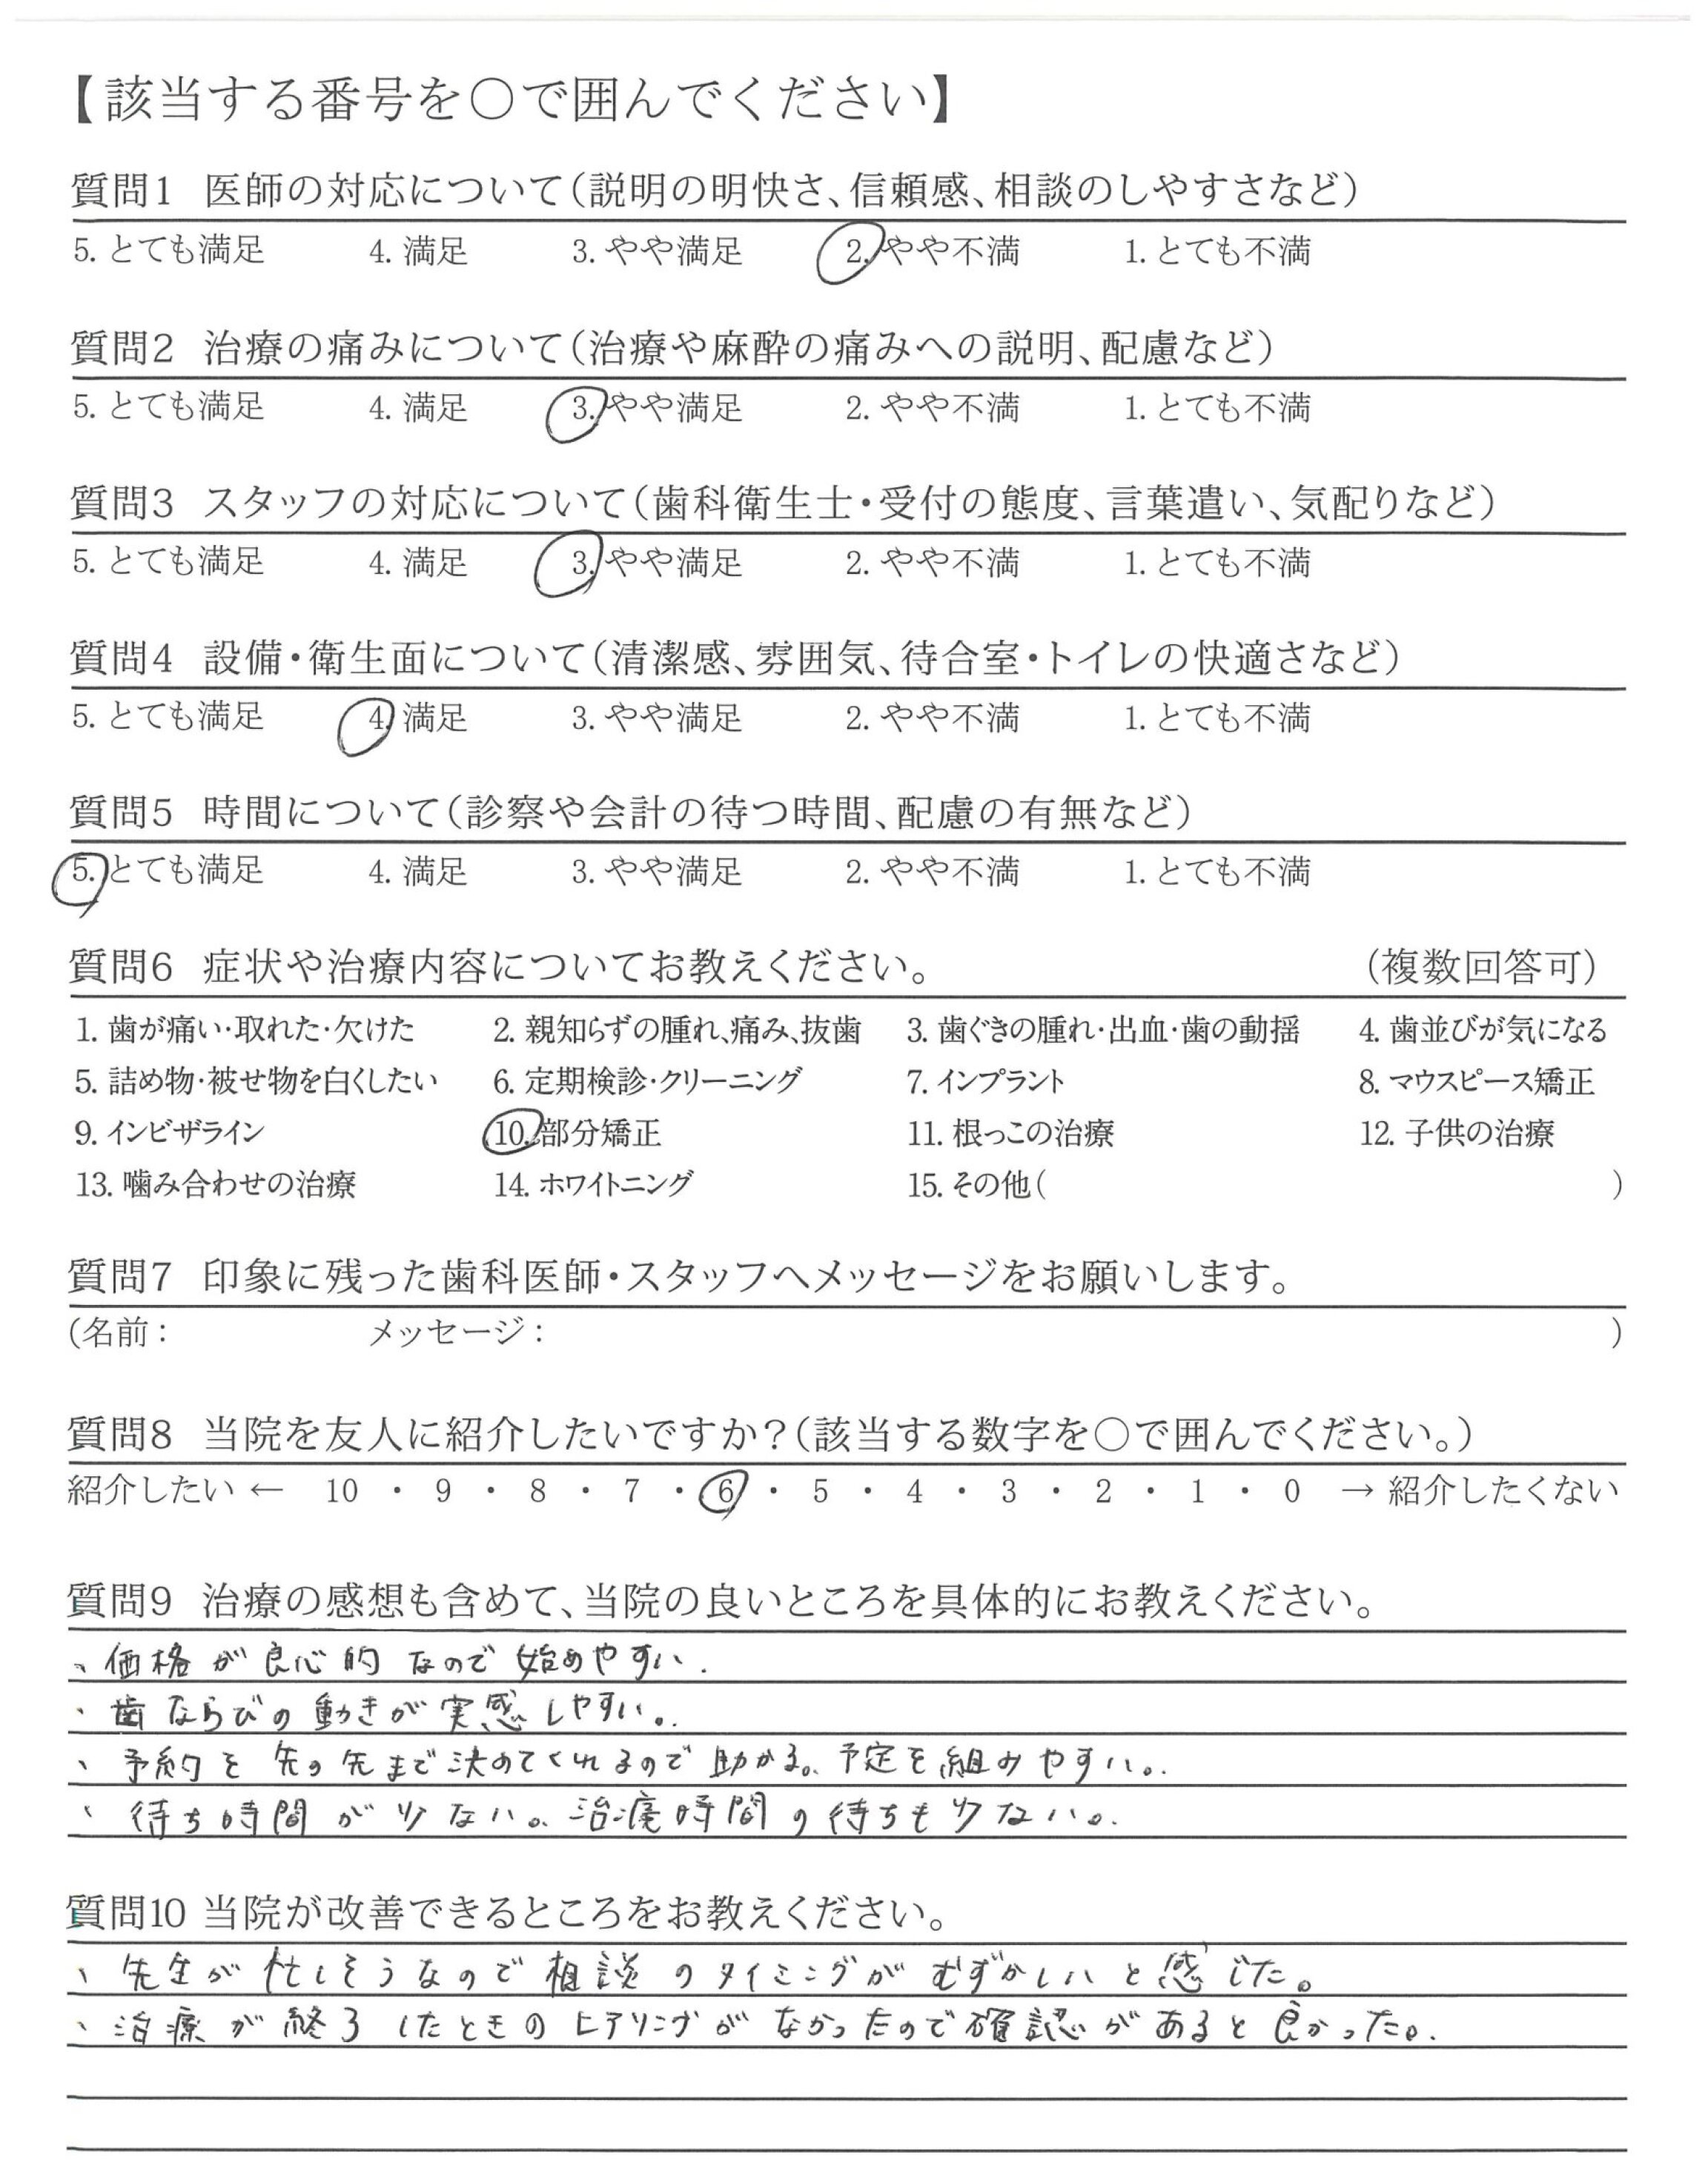 【該当する番号を〇で囲んでください】
質問1 医師の対応について（説明の明快さ、信頼感、相談のしやすさなど）
5. とても満足 4. 満足 3. やや満足 2. やや不満 1. とても不満
質問2 治療の痛みについて（治療や麻酔の痛みへの説明、配慮など）
5. とても満足 4. 満足 3. やや満足 2. やや不満 1. とても不満
質問3 スタッフの対応について（歯科衛生士・受付の態度、言葉遣い、気配りなど）
5. とても満足 4. 満足 3. やや満足 2. やや不満 1. とても不満
質問4 設備・衛生面について（清潔感、雰囲気、待合室・トイレの快適さなど）
5. とても満足 4. 満足 3. やや満足 2. やや不満 1. とても不満
質問5 時間について（診察や会計の待つ時間、配慮の有無など）
5. とても満足 4. 満足 3. やや満足 2. やや不満 1. とても不満
質問6 症状や治療内容についてお教えください。 （複数回答可）
1. 歯が痛い・取れた・欠けた 2. 親知らずの腫れ、痛み、抜歯 3. 歯ぐきの腫れ・出血・歯の動揺 4. 歯並びが気になる
5. 詰め物・被せ物を白くしたい 6. 定期検診・クリーニング 7. インプラント 8. マウスピース矯正
9. インビザライン 10. 部分矯正 11. 根っこの治療 12. 子供の治療
13. 噛み合わせの治療 14. ホワイトニング 15. その他（ ）
質問7 印象に残った歯科医師・スタッフへメッセージをお願いします。
（名前： メッセージ： ）
質問8 当院を友人に紹介したいですか？（該当する数字を〇で囲んでください。）
紹介したい ← 10 ・ 9 ・ 8 ・ 7 ・ 6 ・ 5 ・ 4 ・ 3 ・ 2 ・ 1 ・ 0 → 紹介したくない
質問9 治療の感想も含めて、当院の良いところを具体的にお教えください。
・価格が良心的なので始めやすい.
・歯ならびの動きが実感しやすい。
・予約を先の先まで決めてくれるので助かる。予定を組みやすい。
・待ち時間が少ない。治療時間の待ちも少ない。
質問10 当院が改善できるところをお教えください。
・先生が忙しそうなので相談のタイミングがむずかしいと感じた。
・治療が終了したときのヒアリングがなかったので確認があると良かった。